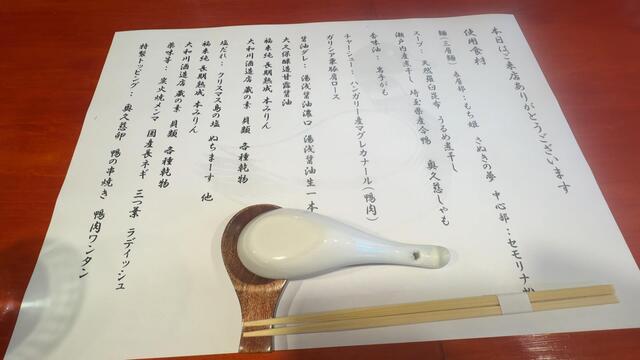 本日はご来店ありがとうございます
使用食材
麺(三層麺) 表層部:もち姫 さぬきの夢 中心部:セモリナ粉
スープ: 天然羅臼昆布 うるめ煮干し
瀬戸内産煮干し 埼玉県産合鴨 奥久慈しゃも
香味油: 岩手がも
チャーシュー:ハンガリー産マグレカナール(鴨肉)
ガリシア栗豚肩ロース
醤油ダレ: 湯浅醤油濃口 湯浅醤油生一本
大久保醸造甘露醤油
福来純 長期熟成 本みりん
大和川酒造店 蔵の素 貝類 各種乾物
塩だれ: クリスマス島の塩 ぬちまーす 他
福来純 長期熟成 本みりん
大和川酒造店 蔵の素 貝類 各種乾物
薬味等: 炭火焼メンマ 国産長ネギ 三つ葉 ラディッシュ
特製トッピング: 奥久慈卵 鴨の串焼き 鴨肉ワンタン